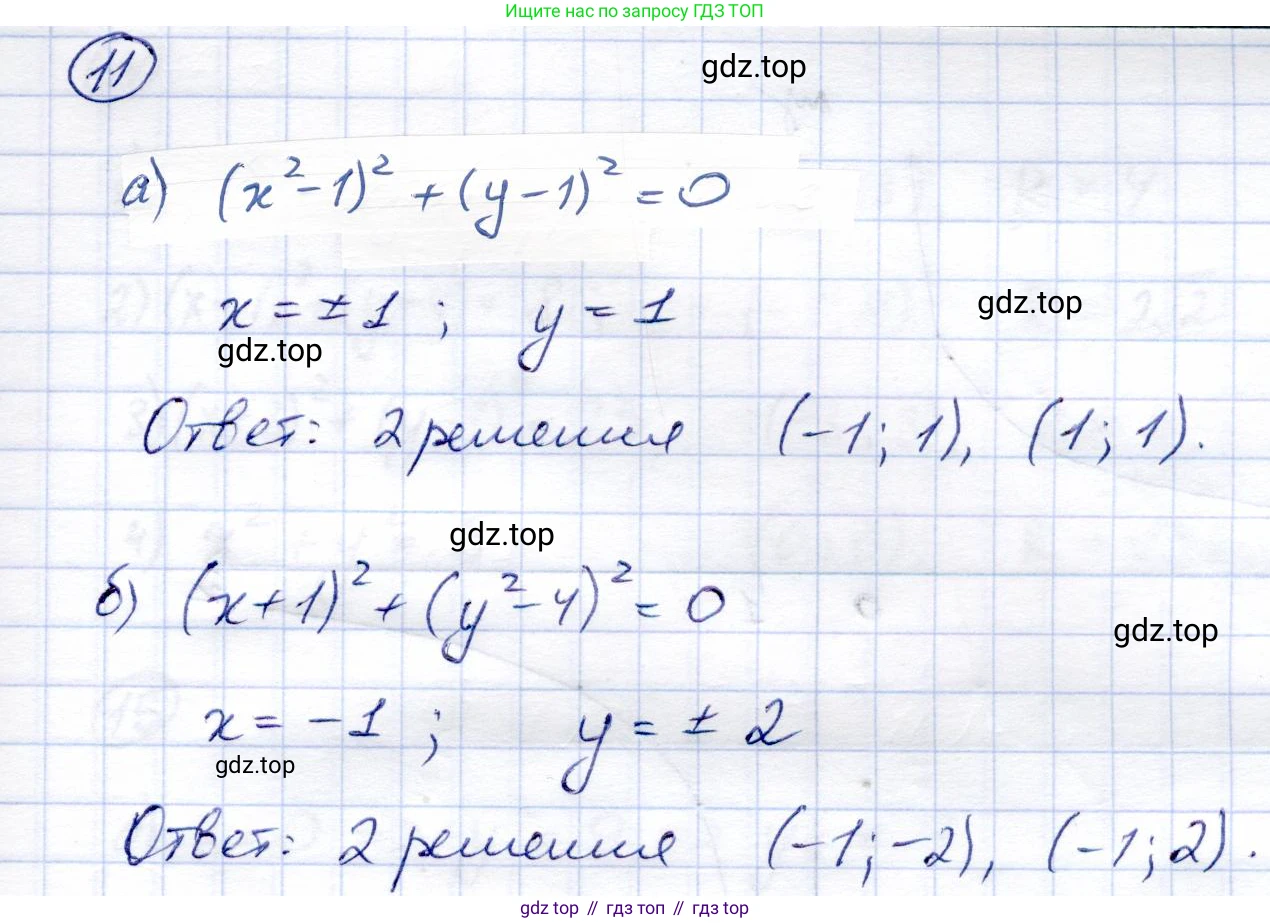 Ищите нас по запросу ГДЗ ТОП
11
gdz.top
а) (x²-1)² + (y-1)² = 0
x = ± 1 ; y = 1
gdz.top
gdz.top
Ответ: 2 решения (-1; 1), (1; 1).
gdz.top
б) (x+1)² + (y²-4)² = 0
gdz.top
x = -1 ; y = ± 2
gdz.top
Ответ: 2 решения (-1; -2), (-1; 2).
gdz top // гдз топ // gdz top